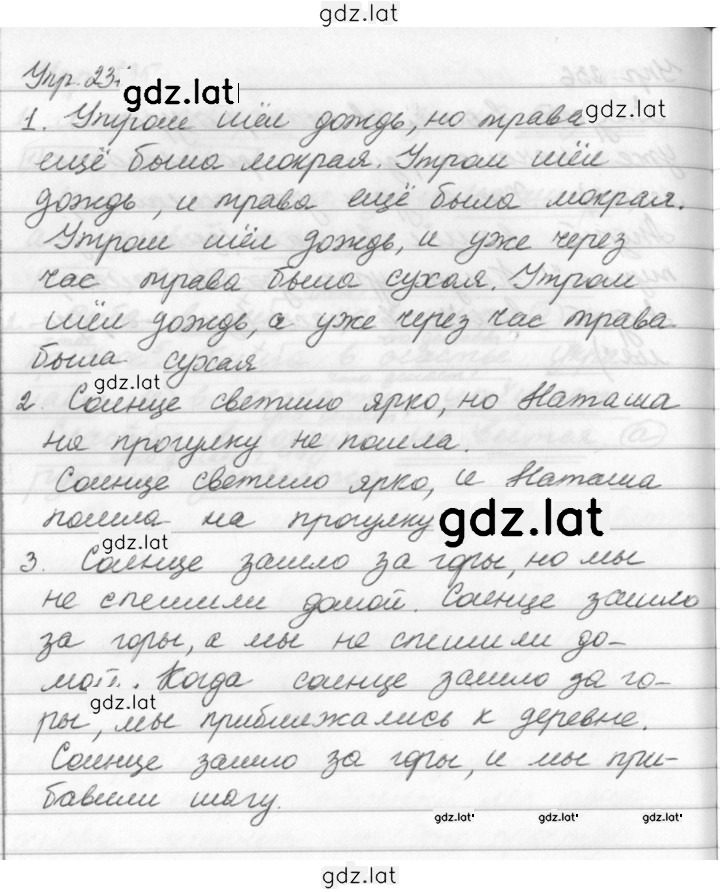 gdz.lat
Упр. 23.
gdz.lat
1. Утром шёл дождь, но трава
ещё была мокрая. Утром шёл
дождь, и трава ещё была мокрая.
Утром шёл дождь, и уже через
час трава была сухая. Утром
шёл дождь, а уже через час трава
была сухая
gdz.lat
2. Солнце светило ярко, но Наташа
на прогулку не пошла.
Солнце светило ярко, и Наташа
пошла на прогулку
gdz.lat
gdz.lat
3. Солнце зашло за горы, но мы
не спешили домой. Солнце зашло
за горы, а мы не спешили до-
мой. Когда солнце зашло за го-
gdz.lat
ры, мы приближались к деревне.
Солнце зашло за горы, и мы при-
бавили шагу.
gdz.lat
gdz.lat
gdz.lat
gdz.lat